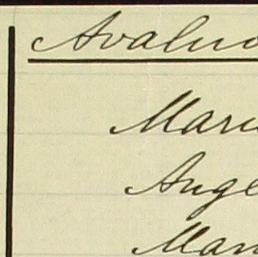 Avaluo
Mari
Ange
Man